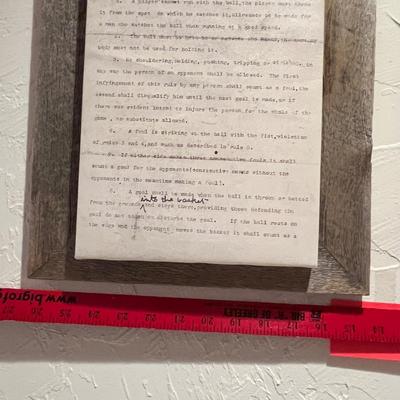 3. A player cannot run with the ball, the player must throw
it from the spot on which he catches it, allowance to be made for
a man who catches the ball when running at a good speed.
4. The ball must be held in or between the hands, the arms or
body must not be used for holding it.
5. No shouldering, holding, pushing, tripping or striking, in
any way the person of an opponent shall be allowed. The first
infringement of this rule by any person shall count as a foul, the
second shall disqualify him until the next goal is made, or if
there was evident intent to injure the person, for the whole of the
game, no substitute allowed.
6. A foul is striking at the ball with the fist, violation
of rules 3 and 4, and such as described in rule 5.
7. If either side makes three consecutive fouls it shall
count a goal for the opponents(consecutive means without the
opponents in the meantime making a foul).
8. A goal shall be made when the ball is thrown or batted
into the basket
from the grounds and stays there, providing those defending the
goal do not touch or disturbe the goal. If the ball rests on
the edge and the opponent moves the basket it shall count as a
www.bigrof
BIG "R" OF GREELEY
27 26 25 24 23 22 21 20 19 18 17 16 15 14